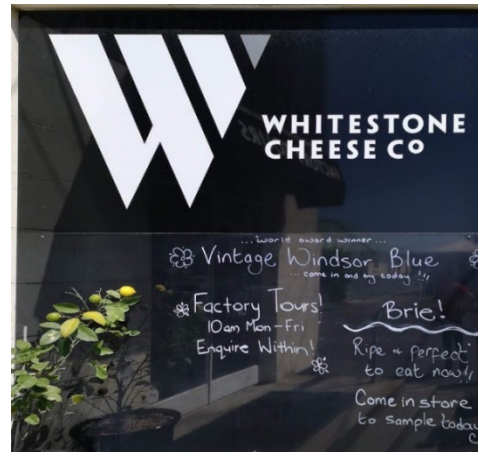 WHITESTONE
CHEESE Co
...world award winner...
Vintage Windsor Blue
...come in and try today!!!
Factory Tours!
10am Mon-Fri
Enquire Within!
Brie!
Ripe & perfect
to eat now!!
Come in store
to sample today